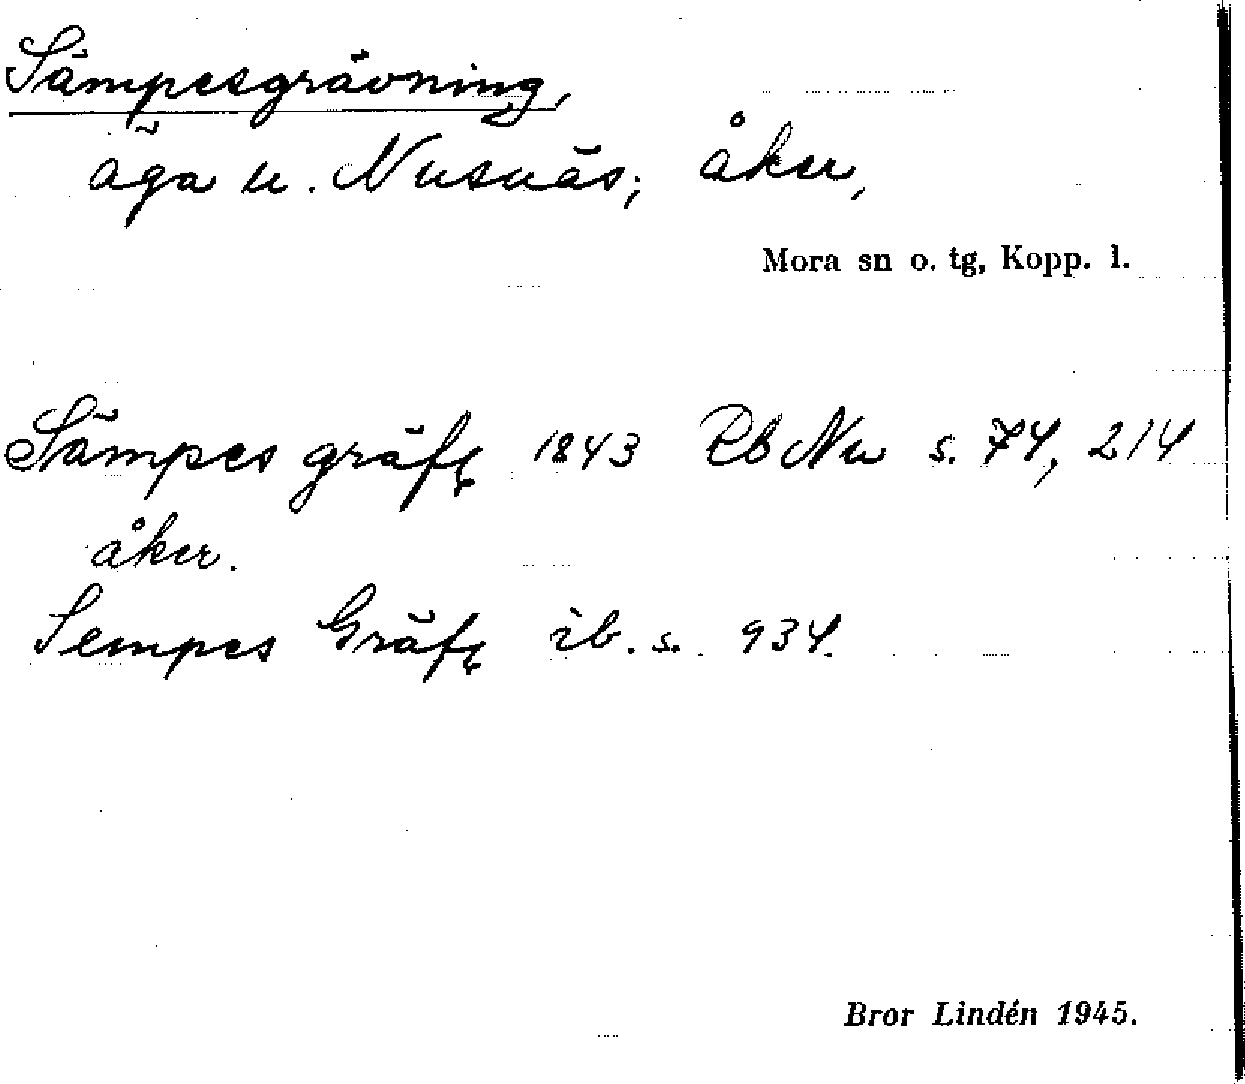 Sämpesgrävning,
äga u. Nusnäs; åker,
Mora sn o. tg, Kopp. l.
Sämpes gräft 1843 Rb Nu s. 74, 214
åker.
Sempes Gräft ib. s. 934.
Bror Lindén 1945.